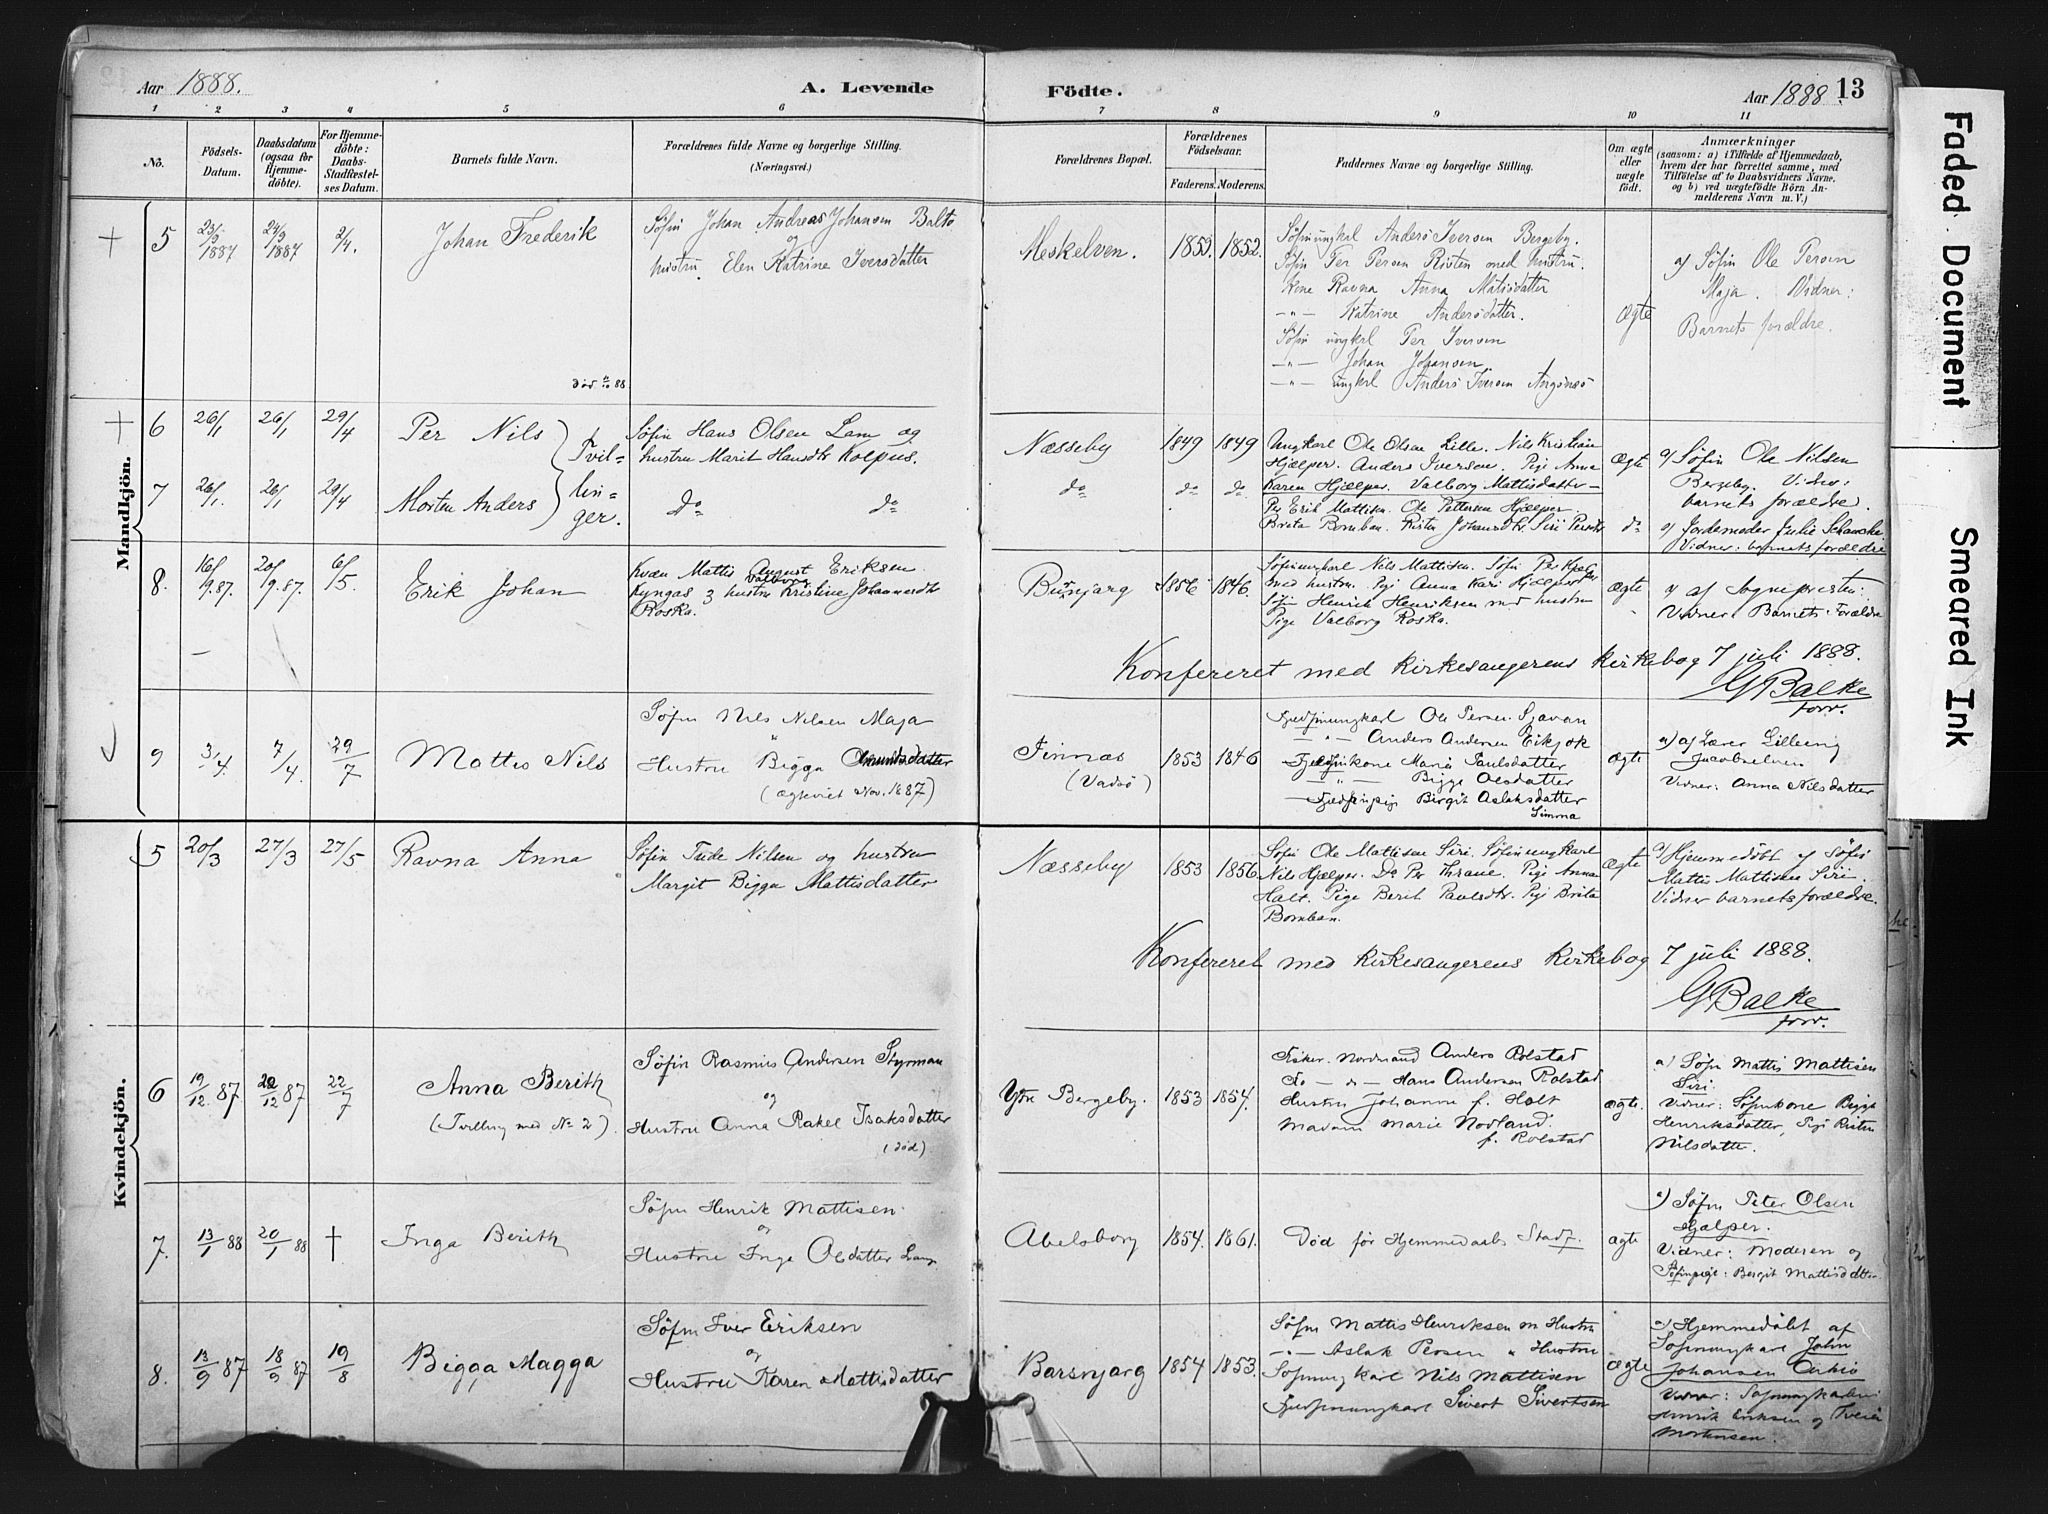 Aar 1888.
A. Levende
1 2 3 4 5 6
No.
Födsels-Datum.
Daabsdatum (ogsaa for Hjemmedöbte).
For Hjemmedöbte: Daabs-Stadfæstelses Datum.
Barnets fulde Navn.
Forældrenes fulde Navne og borgerlige Stilling. (Næringsvei.)
Födte.
Aar 1888. 13
7 8 9 10 11
Forældrenes Bopæl.
Forældrenes Födselsaar.
Faderens. Moderens.
Faddernes Navne og borgerlige Stilling.
Om ægte eller uægte födt.
Anmærkninger
(saasom: a) i Tilfælde af Hjemmedaab,
hvem der har forrettet samme, med
Tilföielse af to Daabsvidners Navne.
og b) ved uægtefödte Börn Anmelderens Navn m. V.)
Mandkjön.
5 23/9 1887 24/9 1887 2/4. Johan Frederik
Söfin Johan Andreas Johansen Balto
og
hustru. Elen Katrine Iversdatter
död 88
Meskelven. 1853. 1852.
Söfinungkrl Anders Iversen Bergeby.
Söfin Per Persen Risten med hustru.
Kone Ravna Anna Matisdatter
—"— Katrine Andersdatter.
Söfin ungkrl Per Iversen
—"— Johan Johansen
—"— ungkrl Anders Iversen Angsnæs
Ægte
a) Söfin Ole Persen
Maja. Vidner:
Barnets forældre.
6 26/1 26/1 29/4 Per Nils
Tvillinger.
Söfin Hans Olsen Lam og
hustru Marit Hansdtr Kolpus.
Næsseby 1849 1849
Ungkarl Ole Olsen Lille. Nils Kristian
Hjælper. Anders Iversen. Pige Anna
Karen Hjælper. Valborg Mattisdatter —
Ægte
a) Söfin Ole Nilsen
Bergeby. Vidner:
barnets forældre.
7 26/1. 26/1 29/4 Morten Anders
do do
do do do
Per Erik Mattisen. Ole Pettersen Hjælper.
Brita Bomban. Risten Johansdtr. Siri Persdtr
do
a) Jordemoder Julie Schancke
Vidner: barnets forældre
8. 16/9.87 20/9.87. 6/5. Erik Johan
Kvæn Mattis August Eriksen
Kyngas & hustru Valborg Kristine Johannesdtr
Roska.
Burjarg 1856 1846.
Söfinungkarl Nils Mattisen. Söfin Per Hjælper
med hustru. Pige Anna Kari Hjælper
Söfin Henrik Henriksen med hustru
Pige Valborg Roska.
Ægte
a) af Sognepresten:
Vidner Barnets Forældre
Konfereret med kirkesangerens kirkebog 7 juli 1888.
G Balke
forr.
9 3/4 7/4. 29/7 Mattis Nils
Söfn Nils Nilsen Maja
"
Hustru Bigga
(Ægteviet Nov. 1887)
Finnæs
(Vadsö)
1853 1846
Fjedfinungkarl Ole Persen Sjavan
—"— Anders Andersen Eikjok
Fjedfinkone Marie Paulsdatter
—"— Bigge Olsdatter
Fjedfinpige Birgit Aslaksdatter
Simma
Ægte
a) af Lærer Lilleeng
Jacobselven
Vidner: Anna Nilsdatter
Kvindekjön.
5 20/3 27/3 27/5 Ravna Anna
Söfin Tude Nilsen og hustru
Margit Bigga Mattisdatter
Næsseby 1853 1856
Söfin Ole Mattisen Siri. Söfinungkarl
Nils Hjælper. Do Per Thrane. Pige Anna
Halt. Pige Berit Paulsdtr. Pige Brita
Bomban.
Ægte
a) Hjemmedöbt af Söfin
Mattis Mattisen Siri.
Vidner barnets forældre.
Konfereret med kirkesangerens kirkebog 7 juli 1888.
G Balke
forr.
6 19/12 87 20/12 87 22/7 Anna Berith
(Tvilling med No 2).
Söfin Rasmus Andersen Styrman
og
Hustru Anna Rakel Isaksdatter
(död)
Ytre Bergeby. 1853 1854.
Fisker. Nordmand Anders Rolstad
Do — " — Hans Andersen Rolstad
Hustru Johanne f. Holt
Madam Marie Nordland.
f. Rolstad
Ægte.
a) Söfn Mattis Mattisen
Siri.
Vidner: Söfinkone Bigga
Henriksdatter, Pige Risten
Nilsdatter.
7. 13/1 88 20/1 88 † Inga Berith
Söfn Henrik Mattisen.
og
Hustru Inga Olsdatter
Abelsborg 1854. 1861.
Död för Hjemmedaabs Stadf.
Ægte
a) Söfn Peter Olsen
Hjælper.
Vidner: Moderen og
Söfinpige: Bergit Mattisdatter
8. 13/9 87 18/9 87 19/8 Bigga Magga
Söfn Iver Eriksen
og
Hustru Karen Mattisdatter
Barsnjarg 1854 1853.
Söfn Mattis Henriksen m Hustru
—"— Aslak Persen " Hustru
Söfinungkarl Nils Mattisen
Fjedfinungkarl Sivert Sivertsen
Ægte
a) Hjemmedöbt af
Söfinungkarl John
Johansen
Vidner: Söfinungkarlene
Henrik Eriksen og
Mortensen.
Faded Document
Smeared Ink